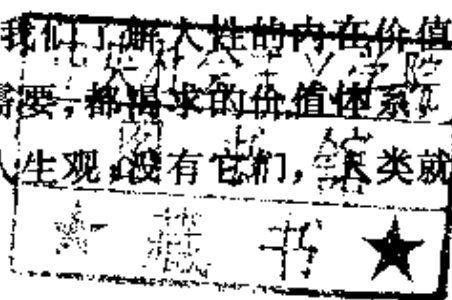 我们了解人性的内在价值
需要，都渴求的价值体系，
人生观，没有它们，人类就
图书馆
★藏书★